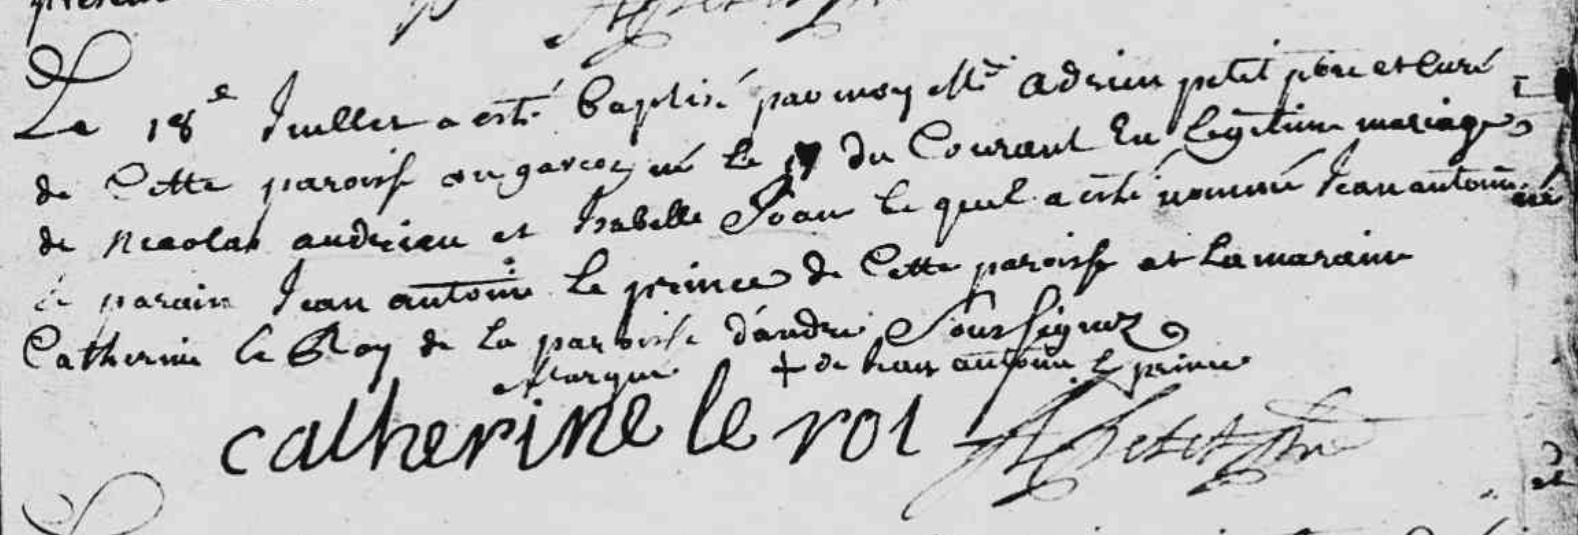 Le 18e Juillet a esté baptisé par moy Me adrien petit ptre et curé
de Cette paroisse un garcon né le 17 du Courant En legitime mariage
de nicolas andrieu et Isabelle Joan le quel a esté nommé Jean antoine
le parain Jean antoine le prince de Cette paroisse et La maraine
Catherine le Roy de la paroisse d'andre Soussignez
Marque + de Jean antoine le prince
catherine le roi A Petit ptre